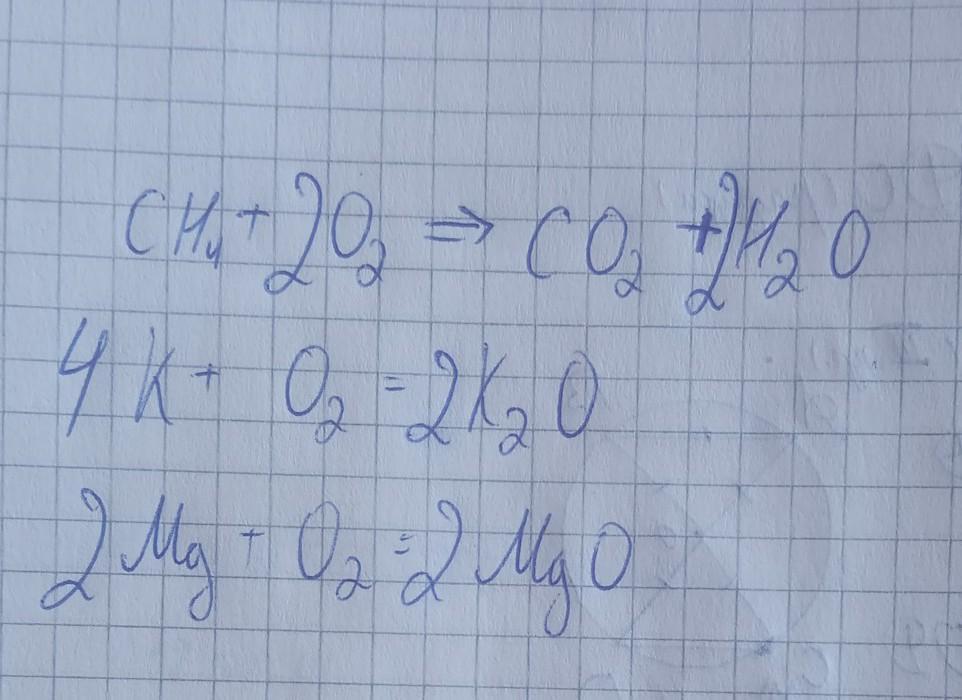 CH₄ + 2O₂ ⇒ CO₂ + 2H₂O
4K + O₂ = 2K₂O
2Mg + O₂ = 2MgO